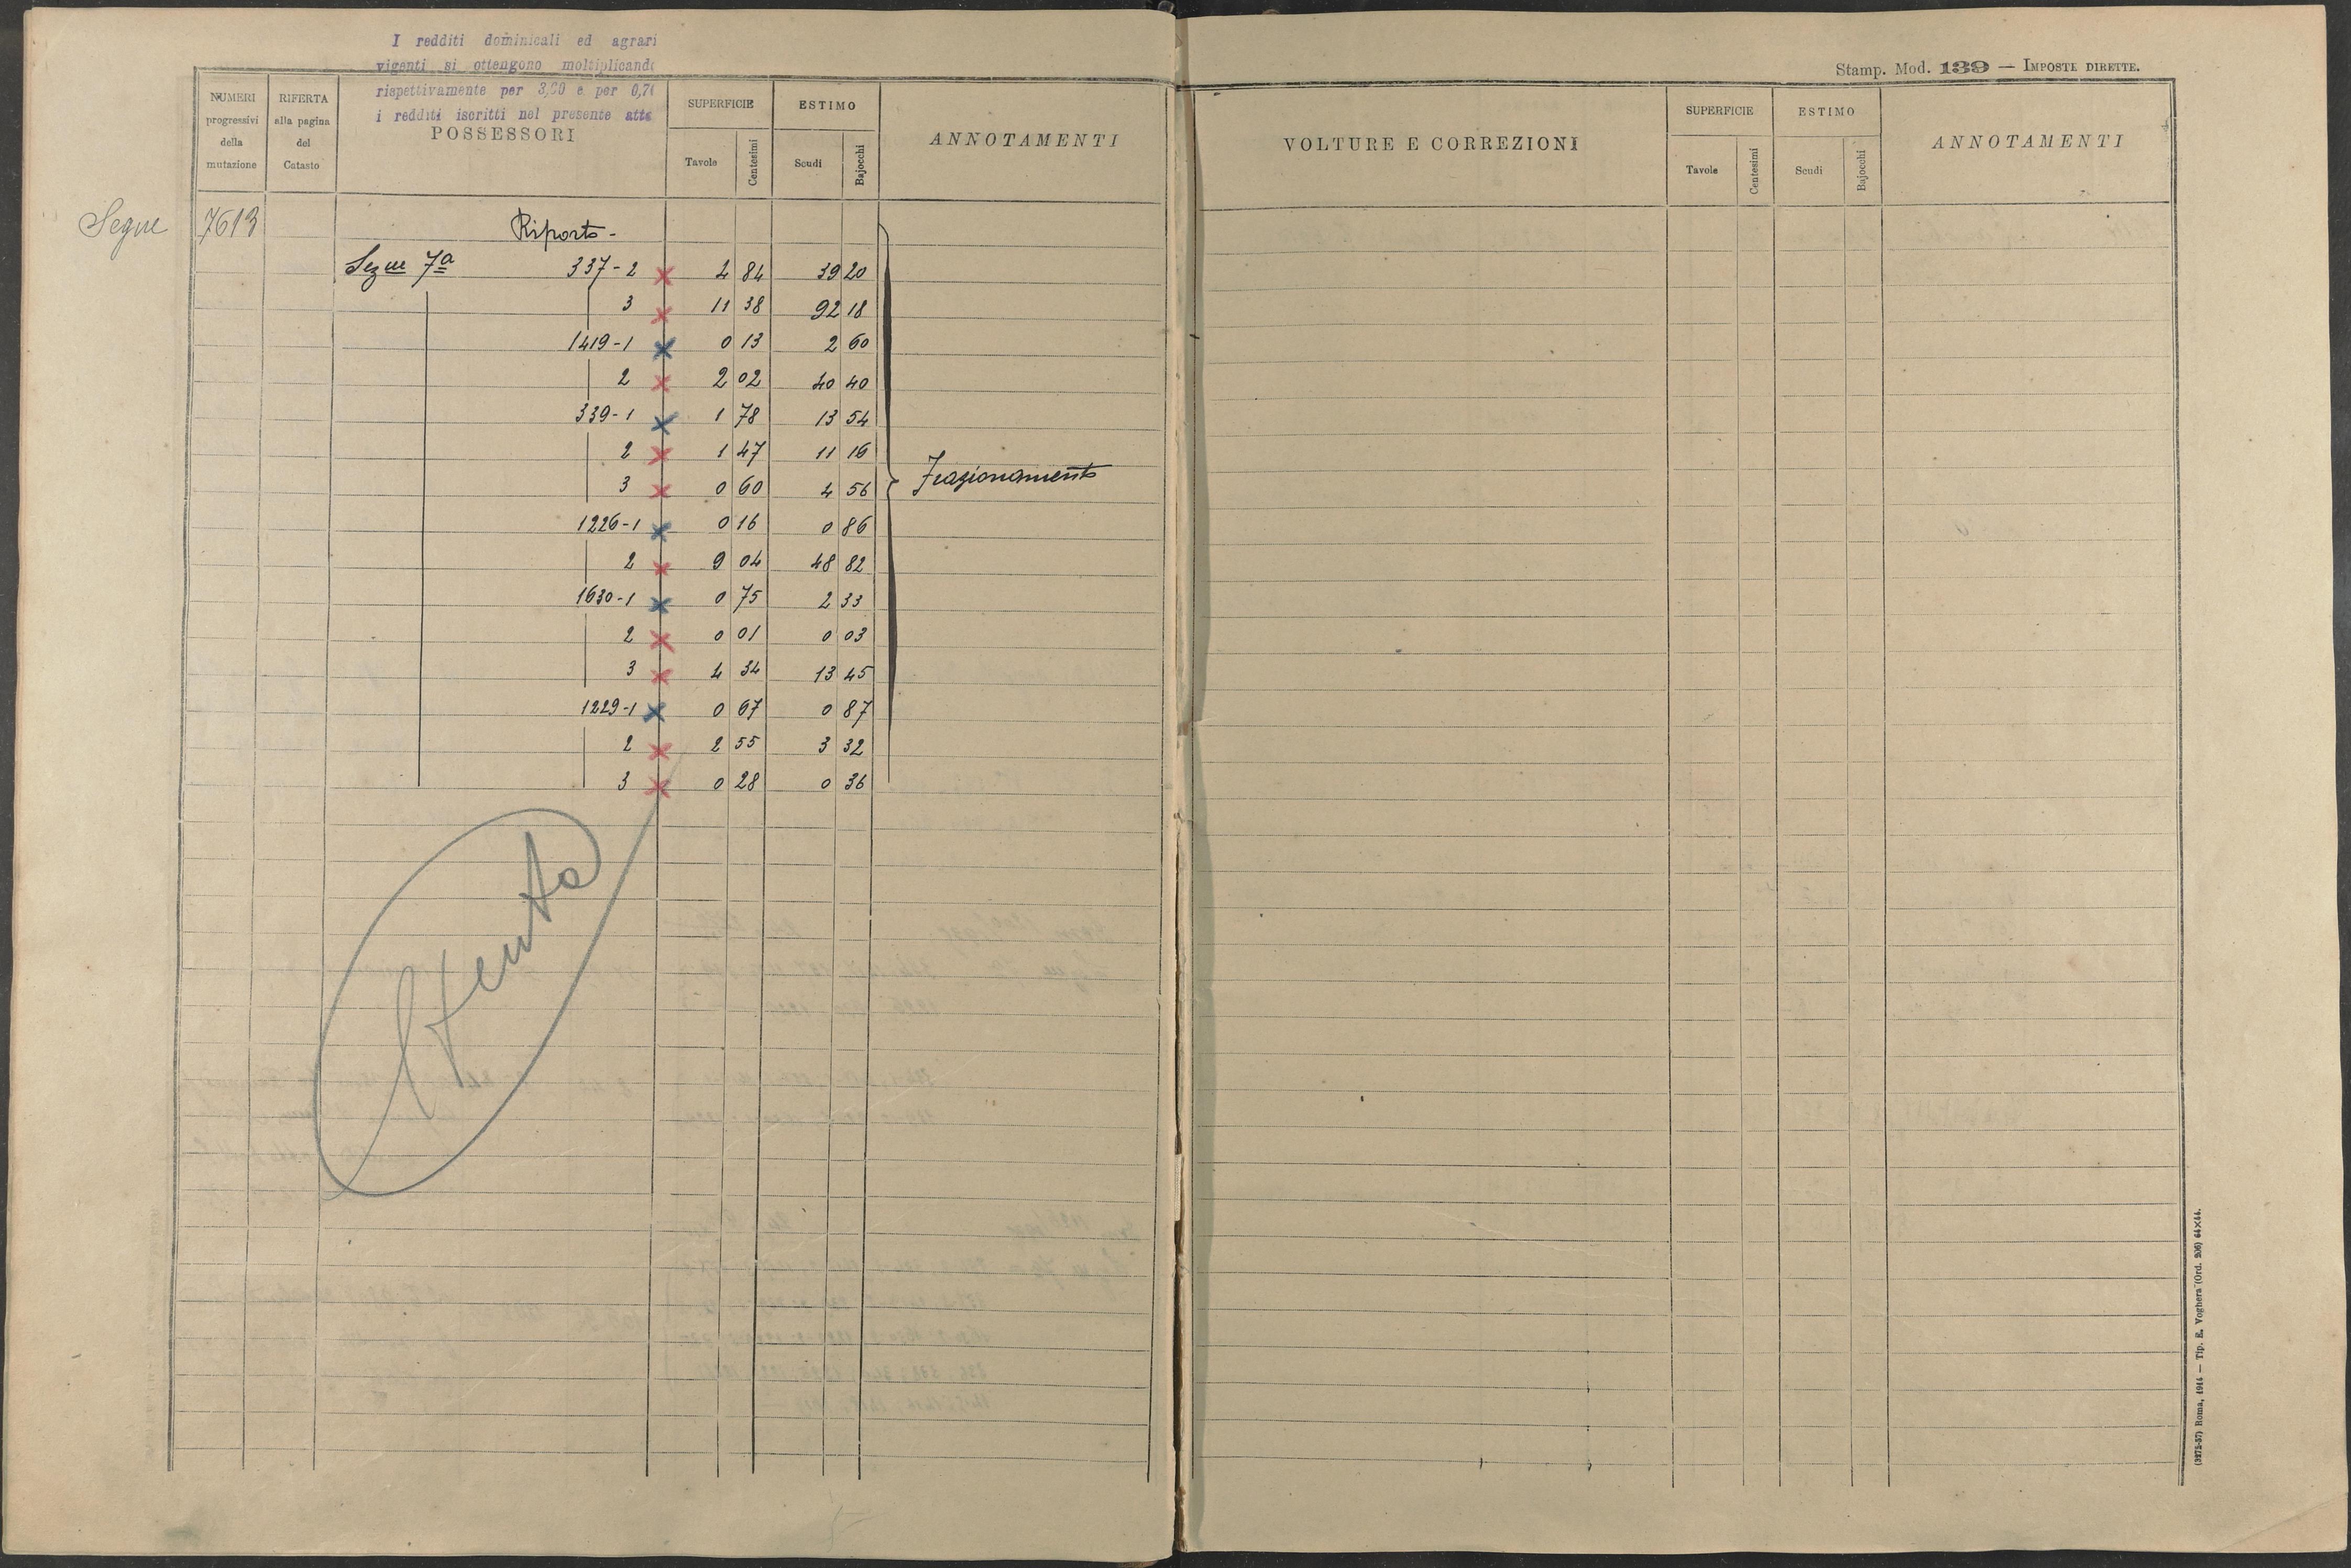 I redditi dominicali ed agrari
vigenti si ottengono moltiplicand
rispettivamente per 3,20 e per 0,70
i redditi iscritti nel presente atto
NUMERI progressivi della mutazione
RIFERTA alla pagina del Catasto
POSSESSORI
SUPERFICIE
Tavole
Centesimi
ESTIMO
Scudi
Bajocchi
ANNOTAMENTI
Segue 7613
Riporto -
Segue 7ª 337-2 4 84 39 20
3 11 38 92 18
1419-1 0 13 2 60
2 2 02 40 40
339-1 1 78 13 54
2 1 47 11 16
3 0 60 4 56
Frazionamento
1226-1 0 16 0 86
2 9 04 48 82
1630-1 0 75 2 33
2 0 01 0 03
3 4 34 13 45
1229-1 0 67 0 87
2 2 55 3 32
3 0 28 0 36
Stamp. Mod. 139 — IMPOSTE DIRETTE.
VOLTURE E CORREZIONI
SUPERFICIE
Tavole
Centesimi
ESTIMO
Scudi
Bajocchi
ANNOTAMENTI
(3275-57) Roma, 1914 — Tip. E. Voghera (Ord. 206) 64×44.